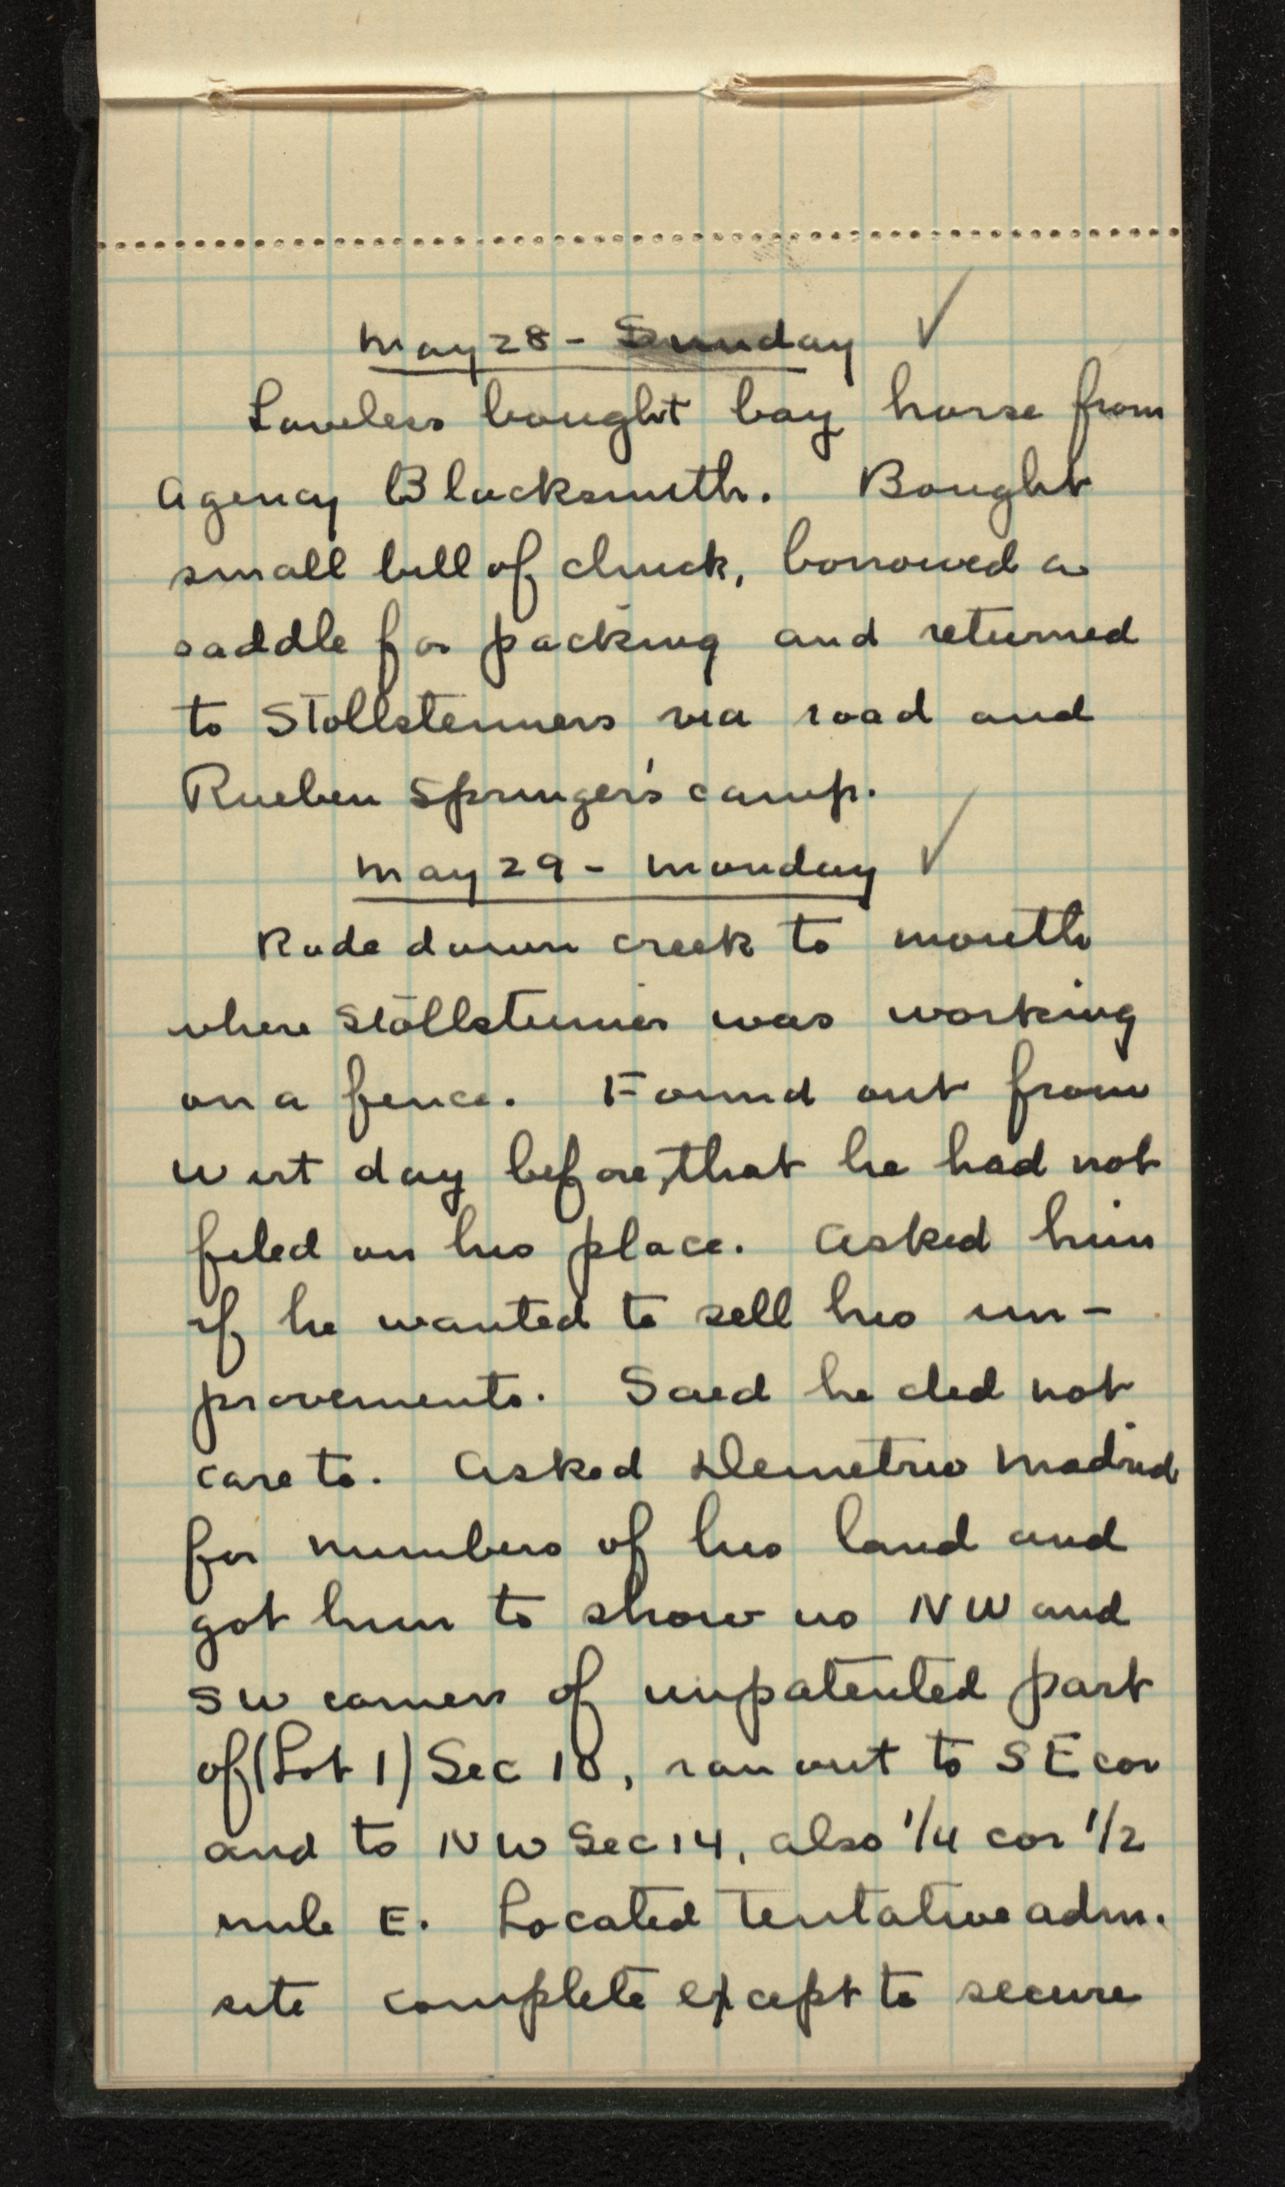 May 28 - Sunday ✓
Loveless bought bay horse from
Agency Blacksmith. Bought
small bill of chuck, borrowed a
saddle for packing and returned
to Stollsteimers via road and
Rueben Springer's camp.
May 29 - Monday ✓
Rode down creek to mouth
where Stollsteimer was working
on a fence. Found out from
Wirt day before, that he had not
filed on his place. Asked him
if he wanted to sell his im-
provements. Said he did not
care to. Asked Demetrio Madrid
for numbers of his land and
got him to show us NW and
SW corners of unpatented part
of (Lot 1) Sec 10, ran out to SE cor
and to NW Sec 14, also 1/4 cor 1/2
mile E. Located tentative adm.
site complete except to secure